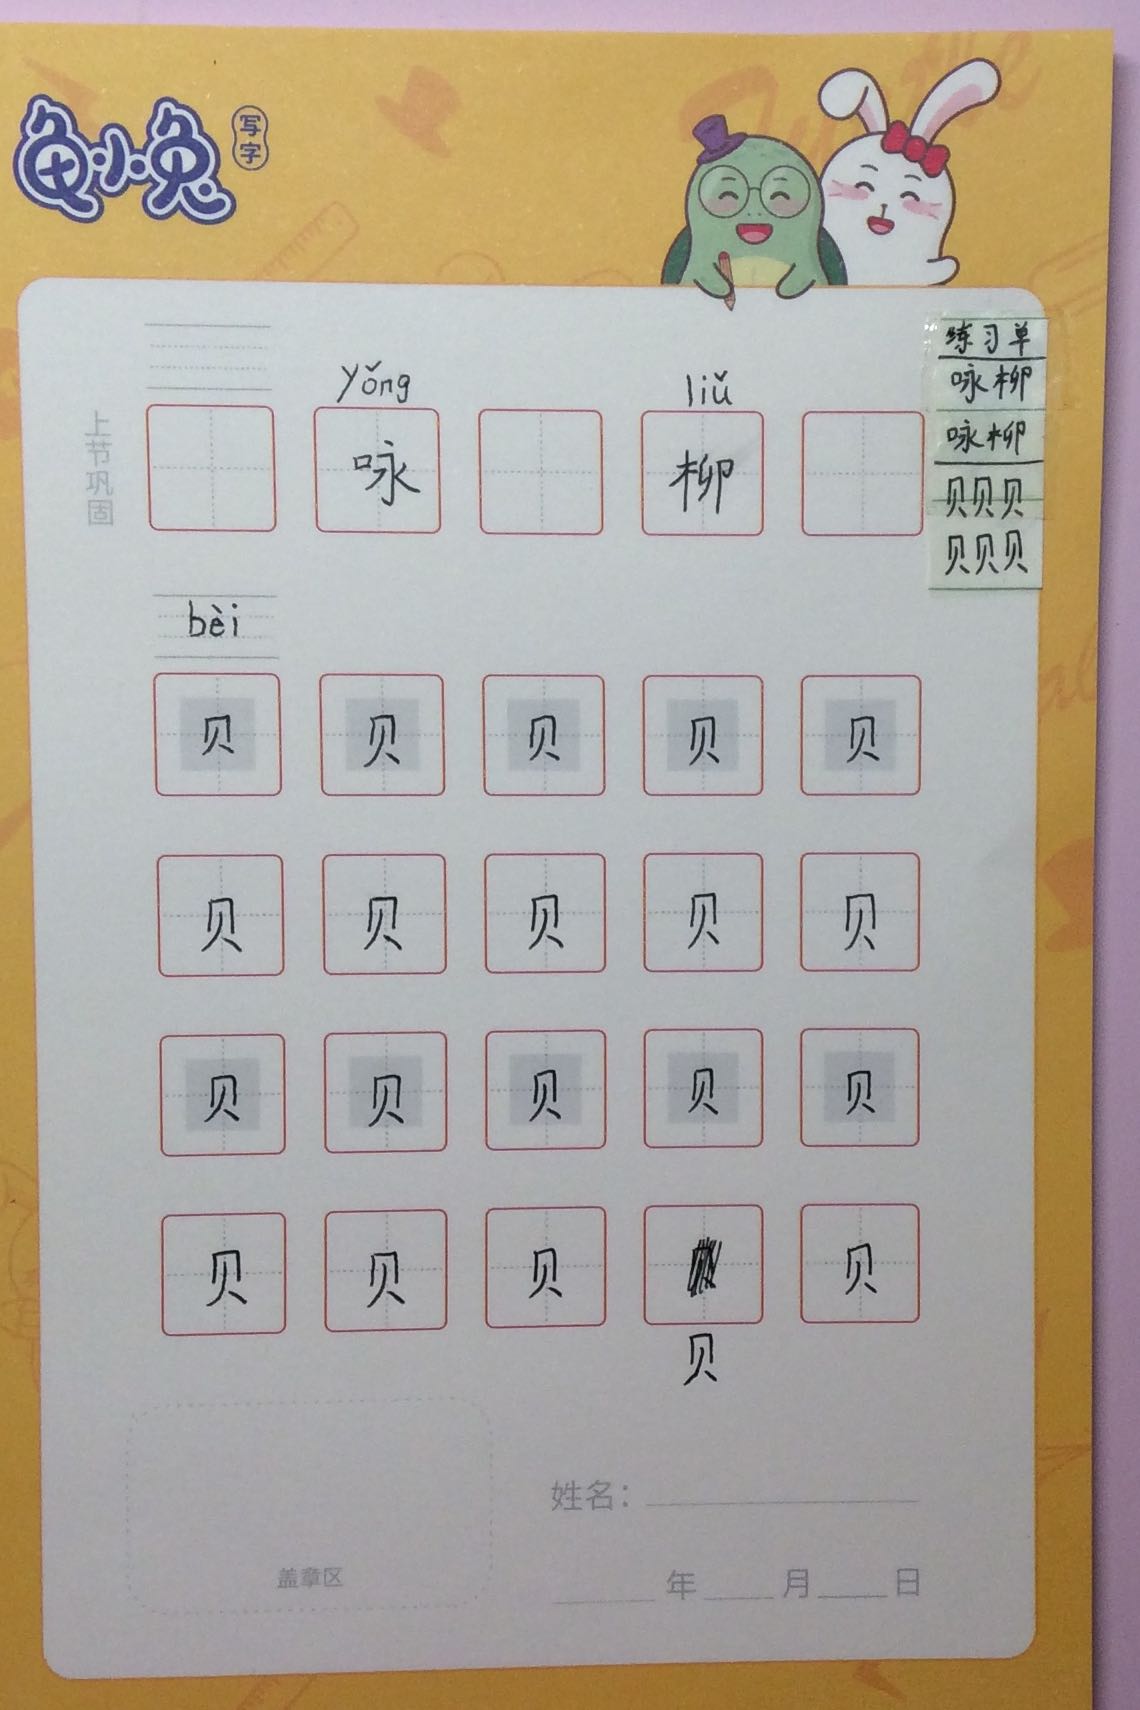 龟小兔
写字
练习单
咏柳
咏柳
贝贝贝
贝贝贝
上节巩固
yǒng liǔ
咏 柳
bèi
贝 贝 贝 贝 贝
贝 贝 贝 贝 贝
贝 贝 贝 贝 贝
贝 贝 贝 贝
贝
姓名：
盖章区
年 月 日